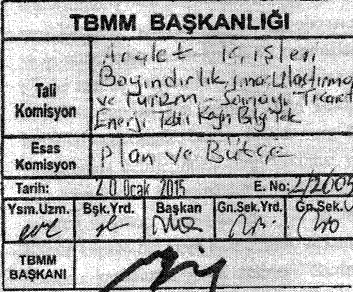 TBMM BAŞKANLIĞI
Tali Komisyon
Adalet İçişleri
Bayındırlık, İmar Ulaştırma
ve Turizm - Sanayi Ticaret
Enerji Tabii Kayn Blg Tek
Esas Komisyon
Plan ve Bütçe
Tarih: 20 Ocak 2015 E. No:
Ysm.Uzm. Bşk.Yrd. Başkan Gn.Sek.Yrd. Gn.Sek.V
TBMM BAŞKANI